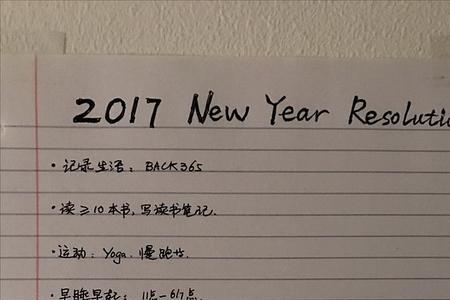 2017 New Year Resolutio
·记录生活：BACK365
·读≥10本书，写读书笔记.
·运动：Yoga. 慢跑步.
·早睡早起：11点—6/7点.